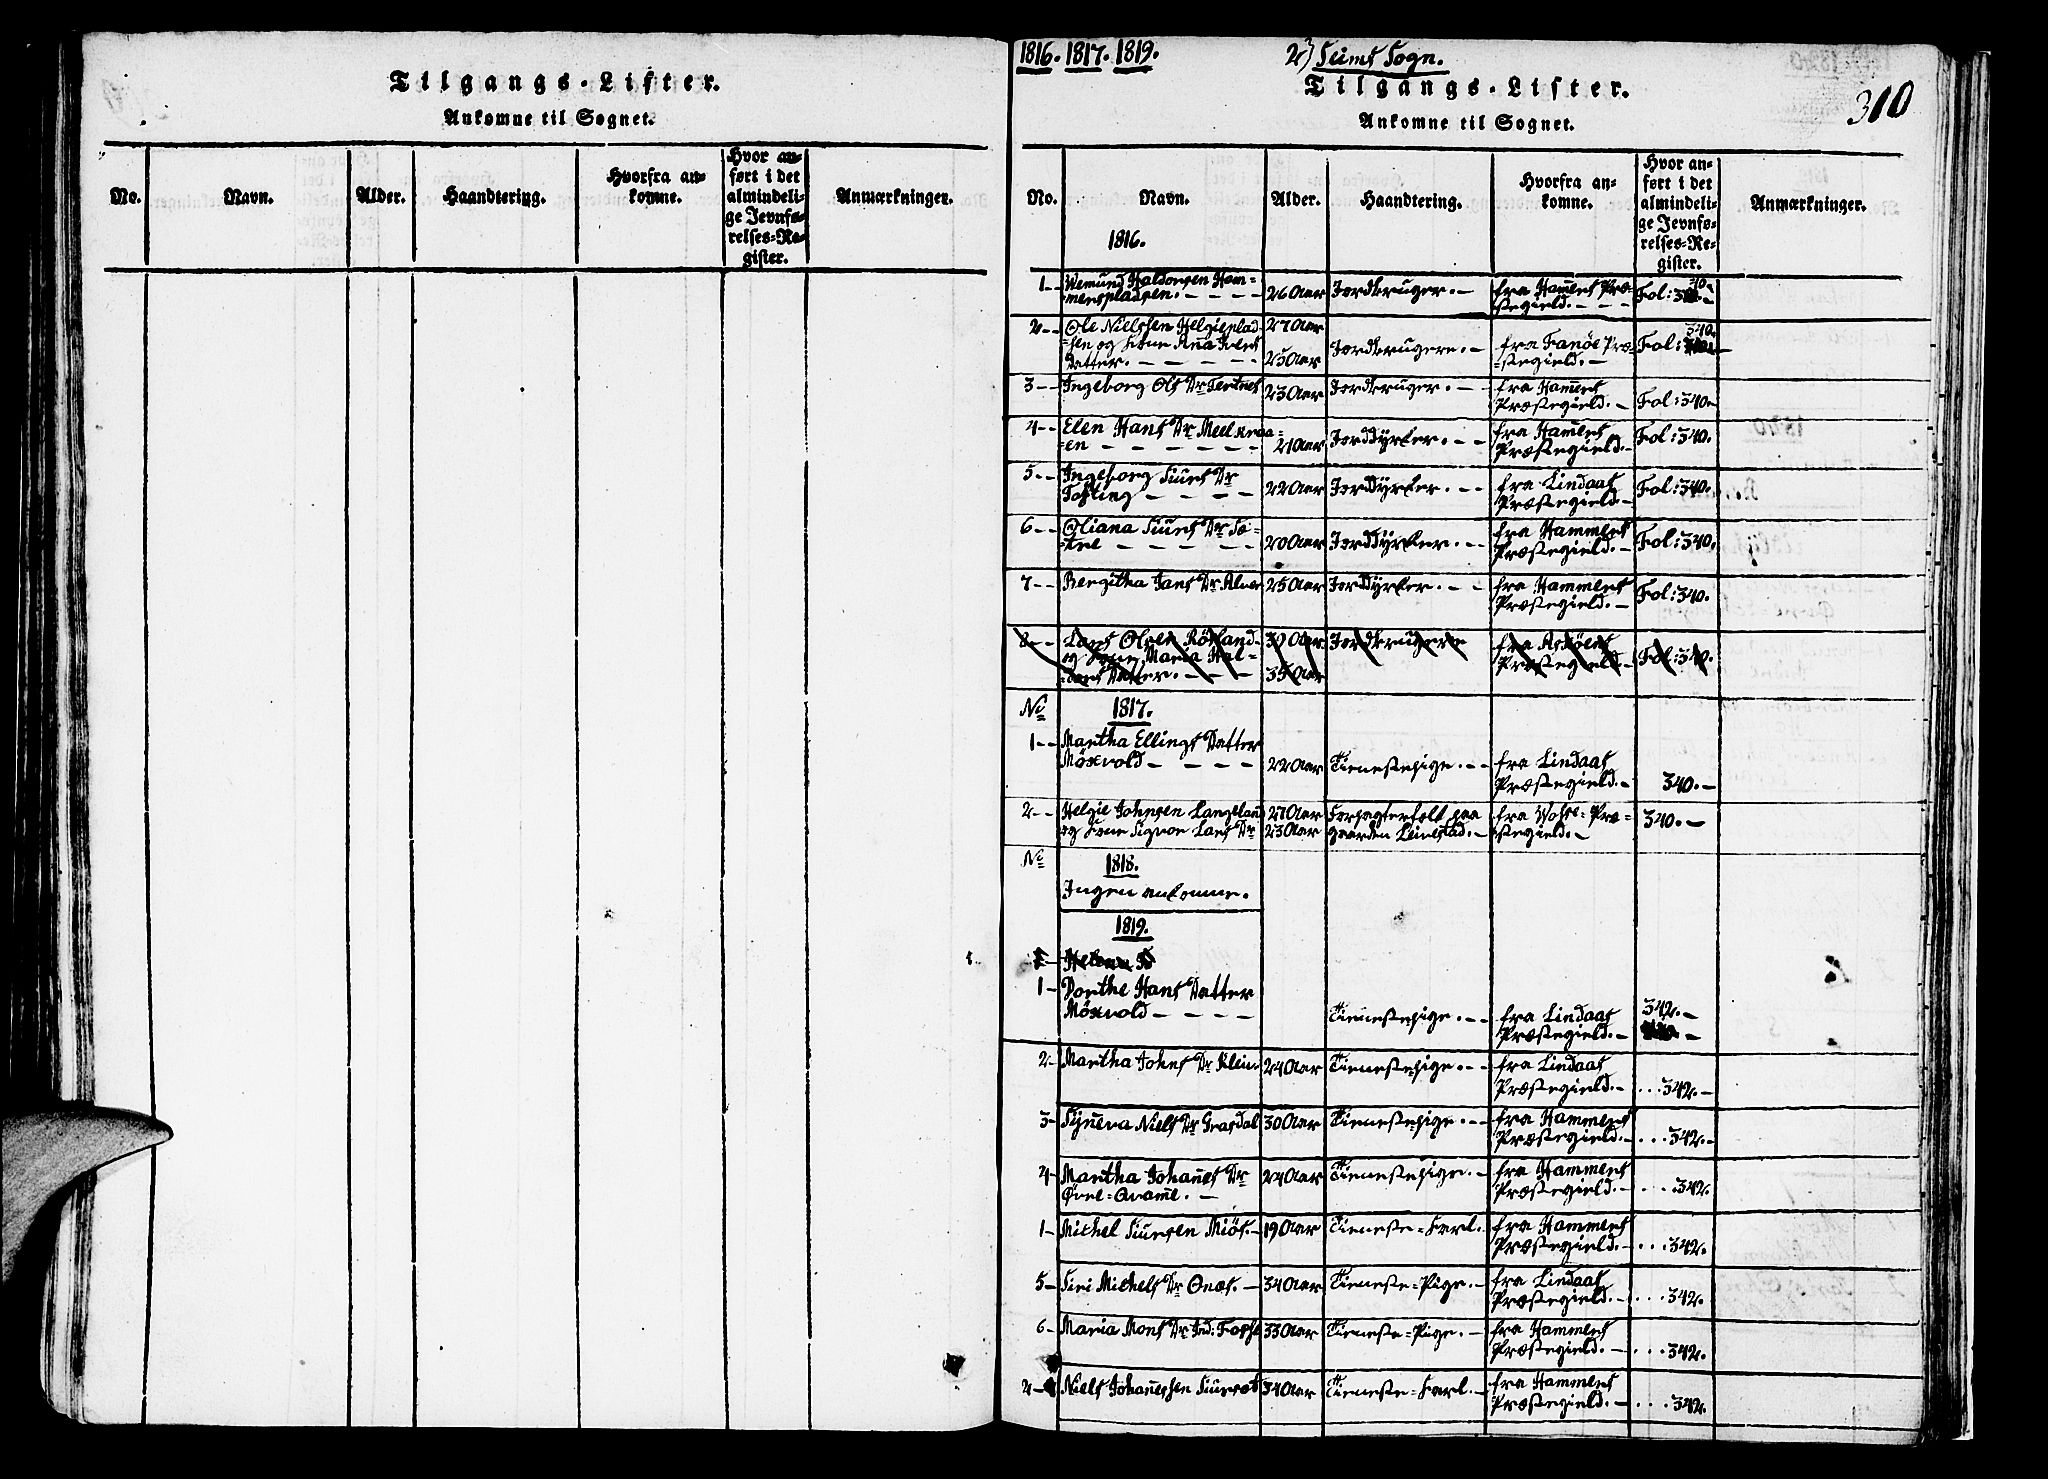 Tilgangs-Lister.
Ankomne til Sognet.
No.
Navn.
Alder.
Haandtering.
Hvorfra an-
komne.
Hvor an-
ført i det
almindeli-
ge Jevnfø-
relses-Re-
gister.
Anmærkninger.
1816. 1817. 1819.
2) Seims Sogn.
310
Tilgangs-Lister.
Ankomne til Sognet.
No.
Navn.
Alder.
Haandtering.
Hvorfra an-
komne.
Hvor an-
ført i det
almindeli-
ge Jevnfø-
relses-Re-
gister.
Anmærkninger.
1816.
1-- Wemund Haldorsen Ham-
menspladsen. 26 Aar Jordbruger. fra Hammers Præ-
stegield. Fol: 340.
2-- Ole Nielssen Helgieplad-
sen og Kone Anna Ivers
Datter. 27 Aar 25 Aar Jordbrugere. fra Fanöe Præ-
stegield. Fol: 340.
3-- Ingeborg Ols Dr Tertnes 23 Aar Jordbruger. fra Hammers
Præstegield. Fol: 340.
4-- Elen Hans Dr Meelkraa-
en 21 Aar Jorddÿrker. fra Hammers
Præstegield. Fol: 340.
5-- Ingeborg Siurs Dr
Toſting 22 Aar Jorddÿrker. fra Lindaas
Præstegield. Fol: 340.
6-- Oliana Siurs Dr Sæ-
tre 20 Aar Jorddÿrker. fra Hammers
Præstegield. Fol: 340.
7-- Bergitha Jans Dr Alver 25 Aar Jorddÿrker. fra Hammers
Præstegield. Fol: 340.
8-- Lars Olsen Röskand
og Kone Maria Hal-
dors Datter. 39 Aar 35 Aar Jordbrugere fra Askøens
Præstegield. Fol: 340.
No 1817.
1-- Martha Ellings Datter
Möxvold 22 Aar Tienestepige. fra Lindaas
Præstegield. 340.
2-- Helgie Johnsen Langeland
og Kone Signor Lars Dr 27 Aar 23 Aar Forpagterfolk paa
gaarden Leinestad. fra Vosse-Præ-
stegield. 340.
No 1818.
Ingen ankomne.
1819.
1- Dorthe Hans Datter
Möxvold Tienestepige. fra Lindaas
Præstegield. 342.
2- Martha Johns Dr Klein 24 Aar Tienestepige. fra Lindaas
Præstegield. 342.
3- Sÿneva Niels Dr Grasdal 30 Aar Tienestepige. fra Hammers
Præstegield. 342.
4- Martha Johanes Dr
Øvre-Qvamme. 24 Aar Tienestepige. fra Hammers
Præstegield. 342.
1- Michel Siursen Miös. 19 Aar Tieneste-Karl. fra Hammers
Præstegield. 342.
5- Siri Michels Dr Qnas. 34 Aar Tieneste-Pige. fra Lindaas
Præstegield. 342.
6- Maria Mons Dr Ind: Fosse 33 Aar Tieneste-Pige. fra Hammers
Præstegield. 342.
2- Niels Johanessen Siursæt 34 Aar Tieneste-Karl. fra Hammers
Præstegield. 342.